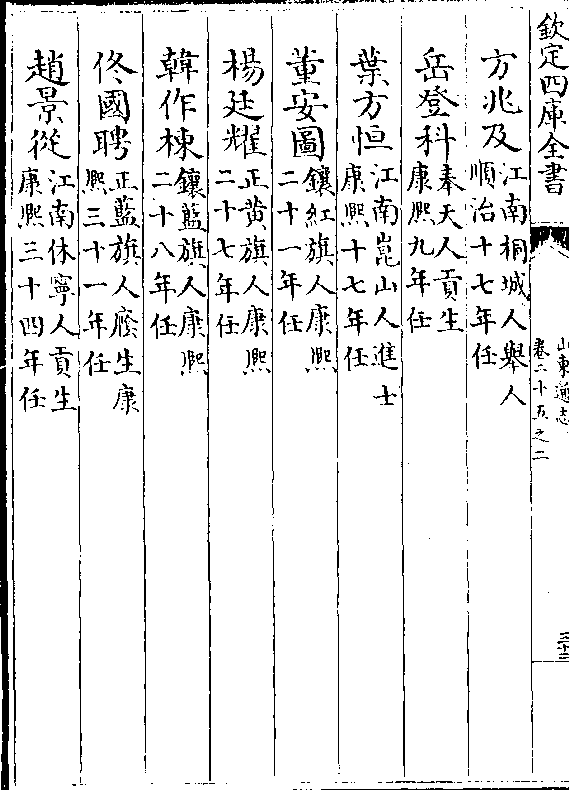 欽定四庫全書
山東通志
卷二十五之二
三十二
方兆及
江南桐城人舉人
順治十七年任
岳登科
奉天人貢生
康熙九年任
葉方恒
江南崑山人進士
康熙十七年任
董安圖
鑲紅旗人康熙
二十一年任
楊廷耀
正黄旗人康熙
二十七年任
韓作棟
鑲藍旗人康熙
二十八年任
佟國聘
正藍旗人廕生康
熙三十一年任
趙景從
江南休寧人貢生
康熙三十四年任